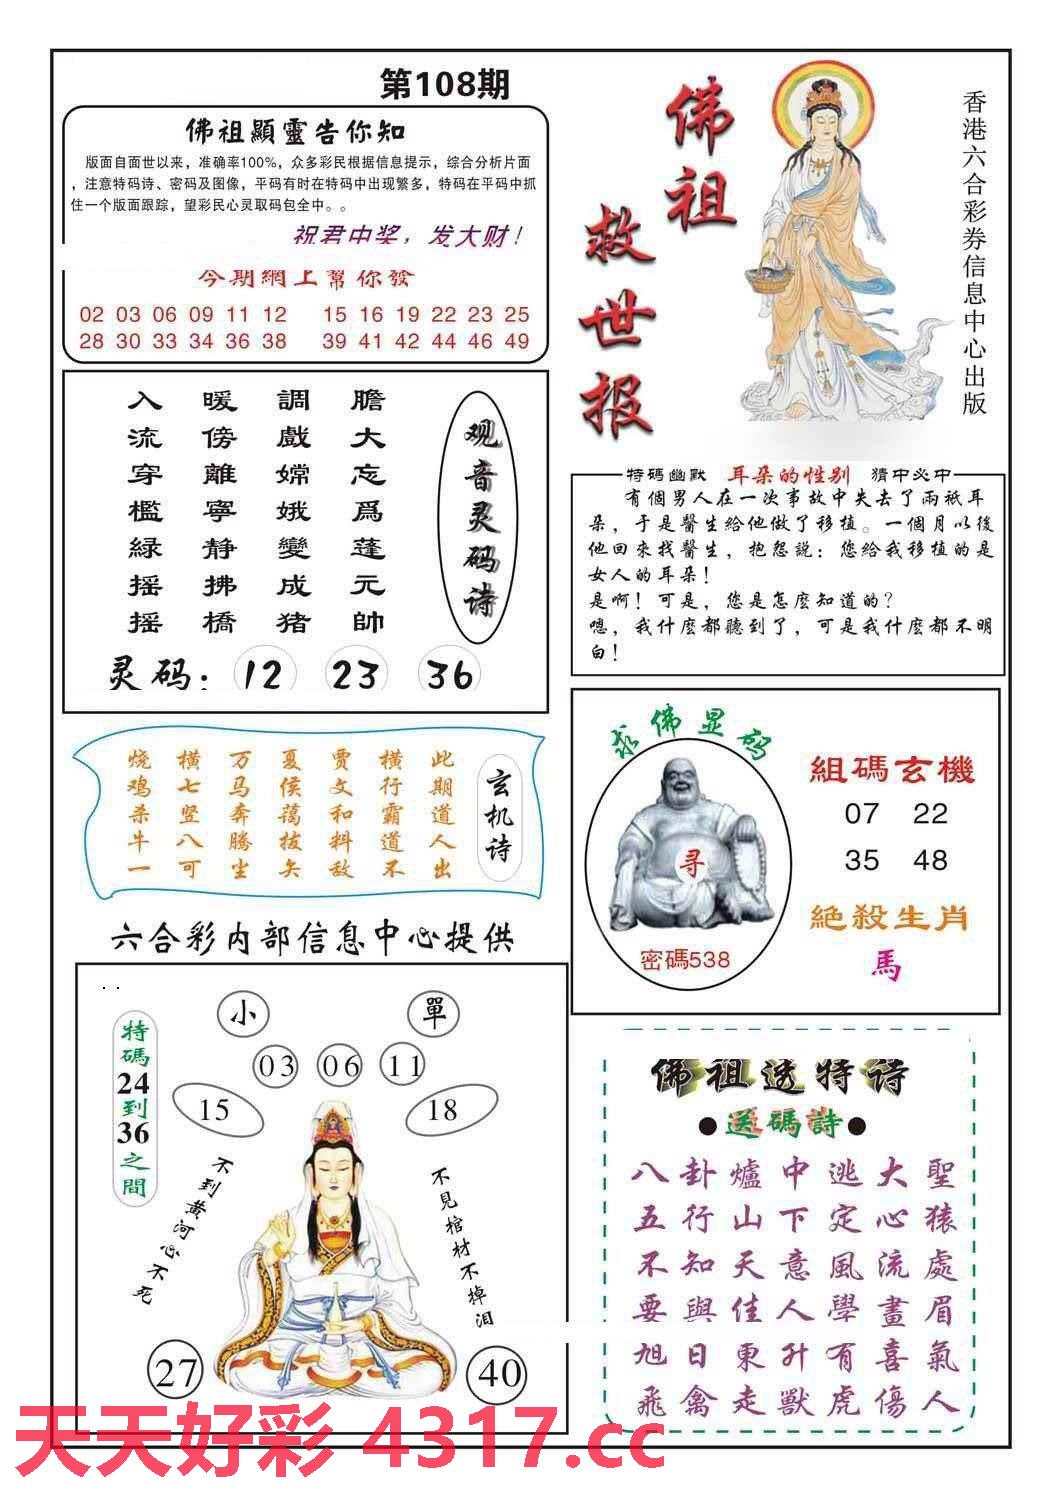 第108期
佛祖顯靈告你知
版面自面世以来，准确率100%，众多彩民根据信息提示，综合分析片面
，注意特码诗、密码及图像，平码有时在特码中出现繁多，特码在平码中抓
住一个版面跟踪，望彩民心灵取码包全中。。
祝君中奖，发大财！
今期網上幫你發
02 03 06 09 11 12 15 16 19 22 23 25
28 30 33 34 36 38 39 41 42 44 46 49
佛祖
救世报
香港六合彩券信息中心出版
觀音灵码诗
膽大忘爲蓬元帥
調戲嫦娥變成猪
暖傍離寧静拂橋
入流穿檻緑摇摇
灵码：12 23 36
特碼幽默 耳朵的性别 猜中必中
有個男人在一次事故中失去了兩衹耳
朵，于是醫生給他做了移植。一個月以後
他回來找醫生，抱怨説：您給我移植的是
女人的耳朵！
是啊！可是，您是怎麽知道的？
嗯，我什麽都聽到了，可是我什麽都不明
白！
玄机诗
此期道人出
横行霸道不
贾文和料敌
夏侯蔼拔矢
万马奔腾生
横七竖八可
烧鸡杀牛一
求佛显码
寻
密碼538
組碼玄機
07 22
35 48
絕殺生肖
馬
六合彩内部信息中心提供
特碼24到36之間
小
單
03 06 11
15
18
不到黄河心不死
不見棺材不掉泪
27
40
佛祖透特诗
●送碼詩●
八卦爐中逃大聖
五行山下定心猿
不知天意風流處
要與佳人學畫眉
旭日東升有喜氣
飛禽走獸虎傷人
天天好彩 4317.cc